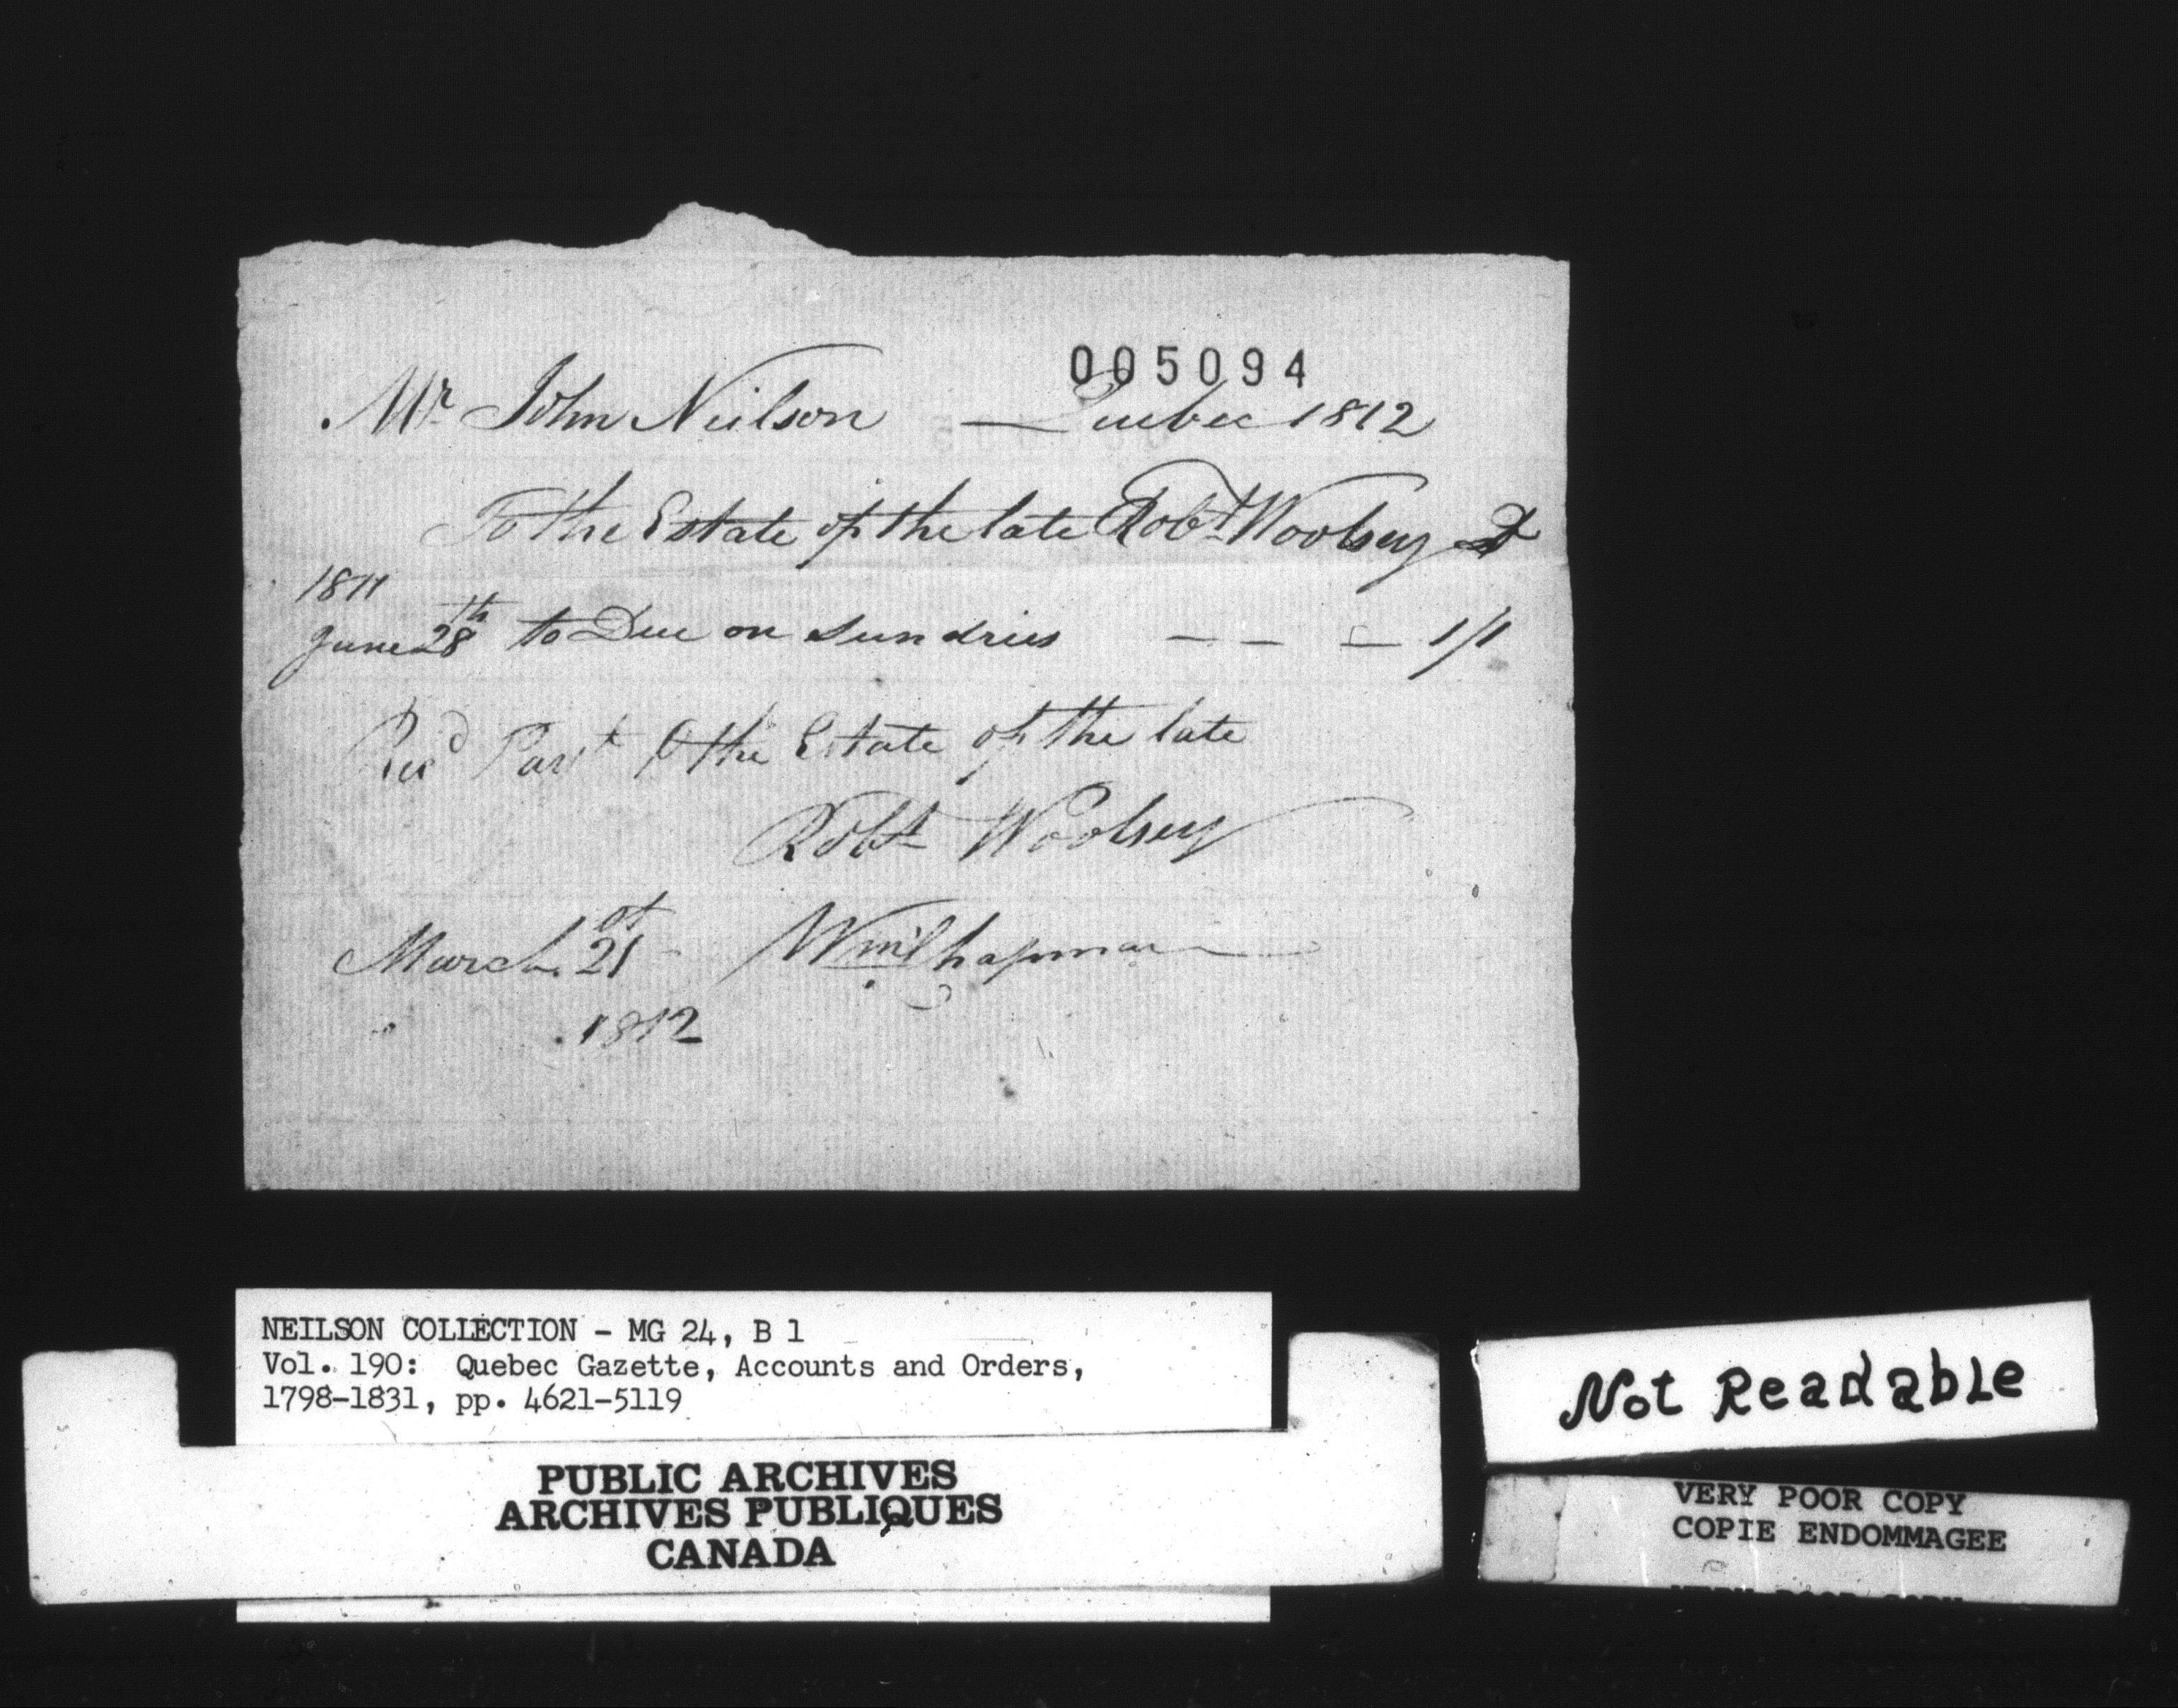 005094
Mr John Neilson — Quebec 1812
To the Estate of the late Robt Woolsey Dr
1811
June 28th to Due on sundries — — — 1/1
Recd Payt the Estate of the late
Robt Woolsey
March 21st Wm Chapman
1812
NEILSON COLLECTION - MG 24, B 1
Vol. 190: Quebec Gazette, Accounts and Orders,
1798-1831, pp. 4621-5119
PUBLIC ARCHIVES
ARCHIVES PUBLIQUES
CANADA
Not Readable
VERY POOR COPY
COPIE ENDOMMAGEE